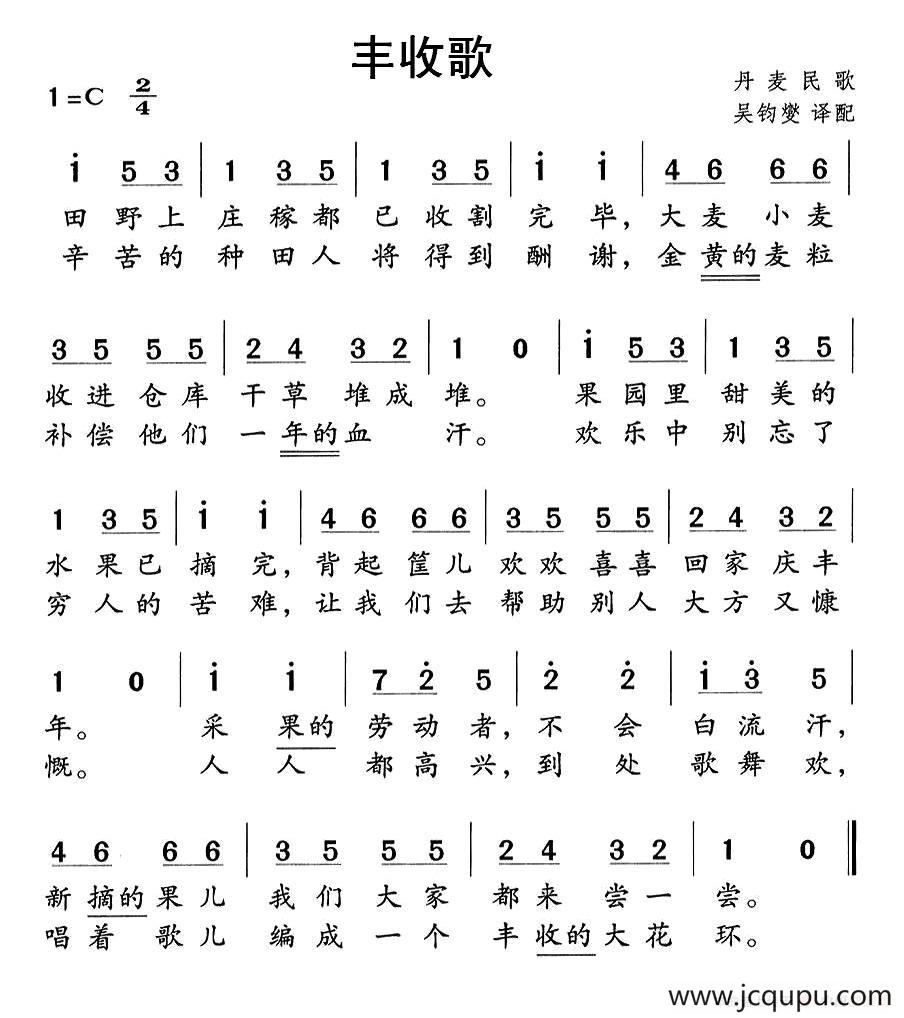 丰收歌
1=C 2/4
丹麦民歌
吴钧燮 译配
i 5 3 | 1 3 5 | 1 3 5 | i i | 4 6 6 6 |
田野上庄稼都已收割完毕，大麦小麦
辛苦的种田人将得到酬谢，金黄的麦粒
3 5 5 5 | 2 4 3 2 | 1 0 | i 5 3 | 1 3 5 |
收进仓库干草堆成堆。果园里甜美的
补偿他们一年的血汗。欢乐中别忘了
1 3 5 | i i | 4 6 6 6 | 3 5 5 5 | 2 4 3 2 |
水果已摘完，背起筐儿欢欢喜喜回家庆丰
穷人的苦难，让我们去帮助别人大方又慷
1 0 | i i | 7 2̇ 5 | 2̇ 2̇ | i 3̇ 5 |
年。采果的劳动者，不会白流汗，
慨。人人都高兴，到处歌舞欢，
4 6 6 6 | 3 5 5 5 | 2 4 3 2 | 1 0 ‖
新摘的果儿我们大家都来尝一尝。
唱着歌儿编成一个丰收的大花环。
www.jcqupu.com